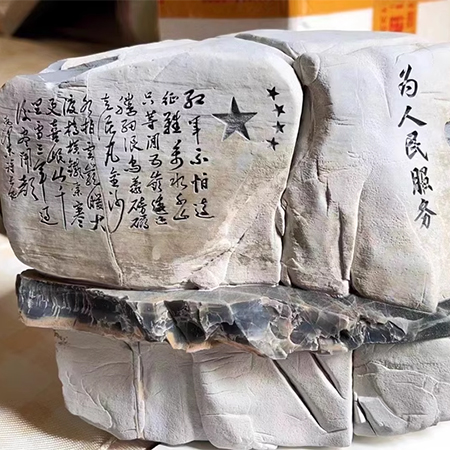 红军不怕远
征难万水千山
只等闲五岭逶迤
腾细浪乌蒙磅礴
走泥丸金沙
水拍云崖暖大
渡桥横铁索寒
更喜岷山千
里雪三军过
后尽开颜
为人民服务